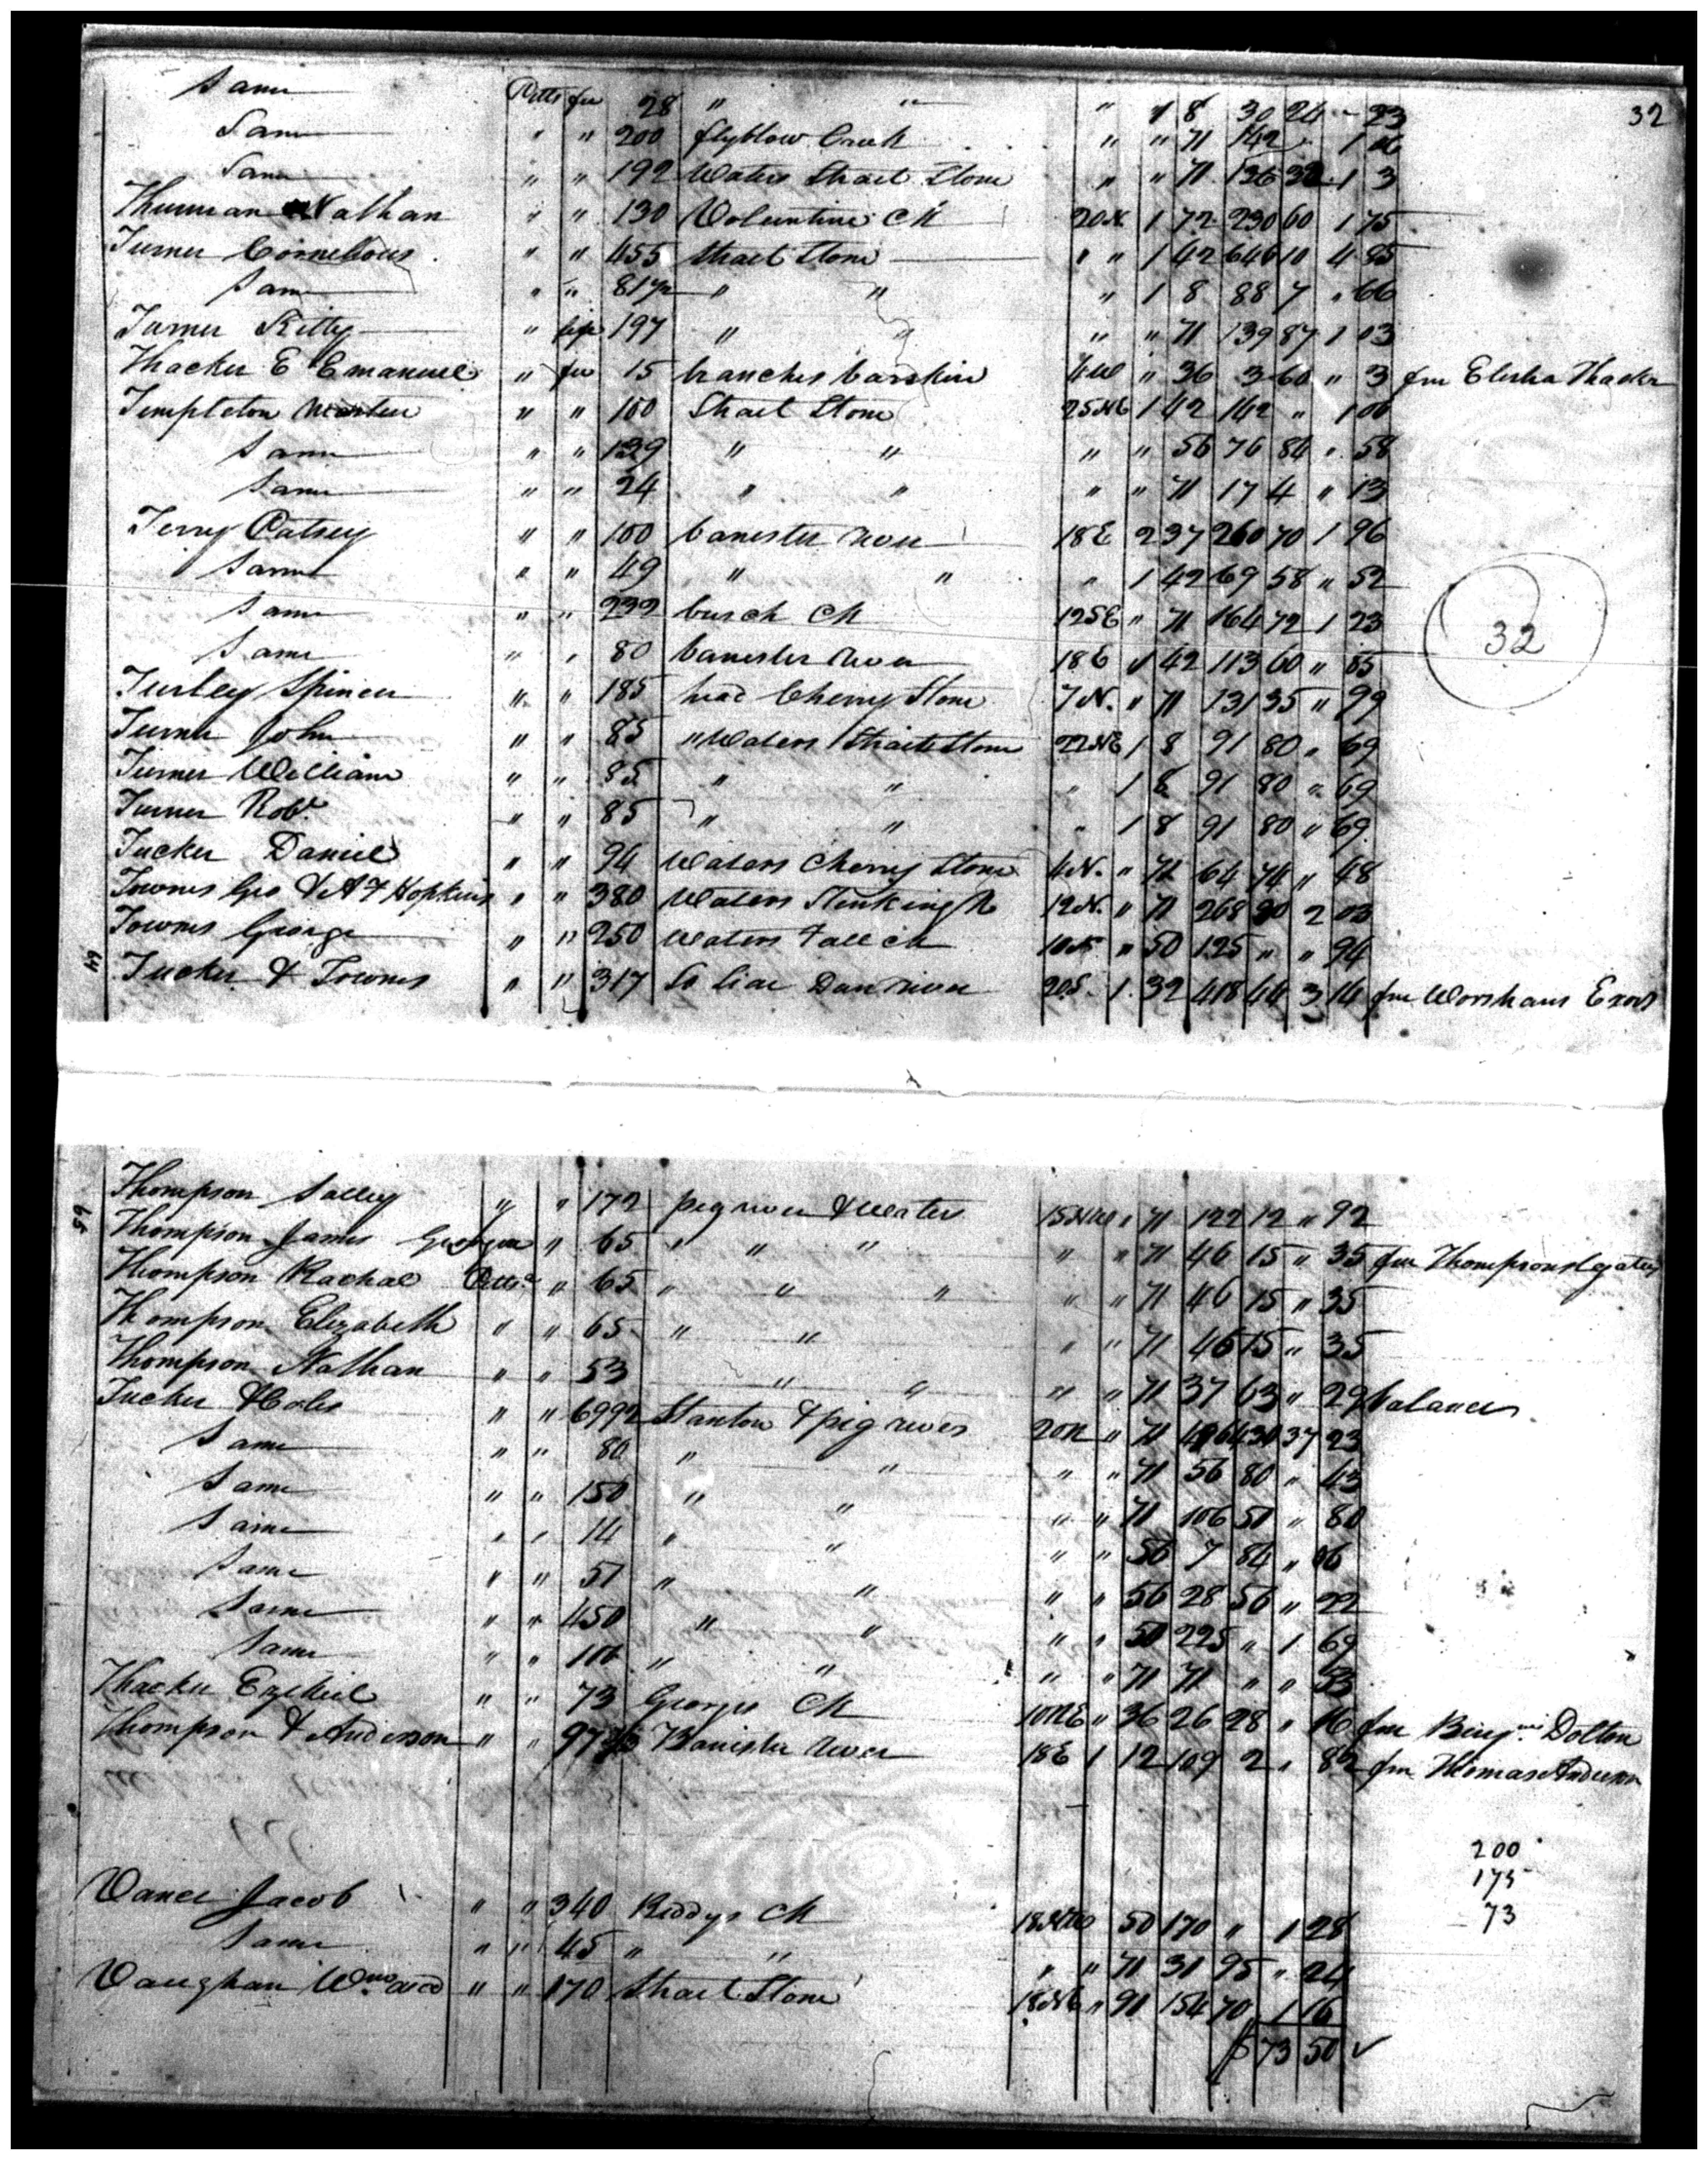 32
Same Pitts fee 28 " " " 1 8 30 24 " 23
Same " " 200 flyblow Creek " " 71 142 1 06
Same " " 192 Waters Strait Stone " " 71 136 32 1 3
Thurman Nathan " " 130 Volentine Ck 20N 1 72 230 60 1 75
Turner Cornelious " " 455 Strait Stone " " 1 42 646 10 4 85
Same " " 81 1/2 " " " 1 8 88 7 " 66
Turner Kitty " life 197 " " " " 71 139 87 1 03
Thacker E Emanuel " fee 15 branches barskin 4W " 36 3 60 " 3 fm Elisha Thacker
Templeton Martin " " 100 Strait Stone 25NE 1 42 142 " 1 06
Same " " 139 " " " " 56 76 84 " 58
Same " " 24 " " " " 71 17 4 " 13
Terry Patsey " " 100 banester River 18E 2 37 260 70 1 96
Same " " 49 " " " 1 42 69 58 " 52
Same " " 232 burch Ck 12SE " 71 164 72 1 23
32
Same " " 80 banester River 18E 1 42 113 60 " 85
Turley Spincer " " 185 head Cherry Stone 7N. " 71 131 35 " 99
Turner John " " 85 " Waters Strait Stone 22NE 1 8 91 80 " 69
Turner William " " 85 " " " 1 8 91 80 " 69
Turner Robt. " " 85 " " " 1 8 91 80 " 69
Tucker Daniel " " 94 Waters Cherry Stone 4N. " 71 64 74 " 48
Townes Geo & A F Hopkins " " 380 Waters Stinking R 12N. " 71 268 90 2 03
Townes George " " 250 Waters Fall Ck 10N " 50 125 " " 94
64 Tucker & Townes " " 317 So Side Dan River 20S. 1 32 418 44 3 14 fm Worshams Exors
65 Thompson Salley " " 172 pig river & Water 15NW " 71 122 12 " 92
Thompson James Georgia " 65 " " " " " 71 46 15 " 35 fm Thompsons legatees
Thompson Rachae Pitts " 65 " " " " " 71 46 15 " 35
Thompson Elizabeth " " 65 " " " " 71 46 15 " 35
Thompson Nathan " " 53 " " " " 71 37 63 " 29 balance
Tucker & Coles " " 6992 Stanton & pig rivers 20N " 71 4964 30 37 23
Same " " 80 " " " " 71 56 80 " 43
Same " " 150 " " " " 71 106 50 " 80
Same " " 14 " " " " 56 7 84 " 06
Same " " 51 " " " " 56 28 56 " 22
Same " " 450 " " " " 50 225 " 1 69
Same " " 100 " " " " 71 71 " " 53
Thacker Ezekiel " " 73 Georges Ck 10NE " 36 26 28 " 16 fm Binjmi Dolton
Thompson & Anderson " " 97 Banister River 18E 1 12 109 2 " 82 fm Thomas Anderson
200
175
73
Vance Jacob " " 340 Reddys Ck 18NW 50 170 " 1 28
Same " " 45 " " " " 71 31 95 " 24
Vaughan Wm " " 170 Strait Stone 18NE " 91 154 70 1 16
$ 73 50 ✓